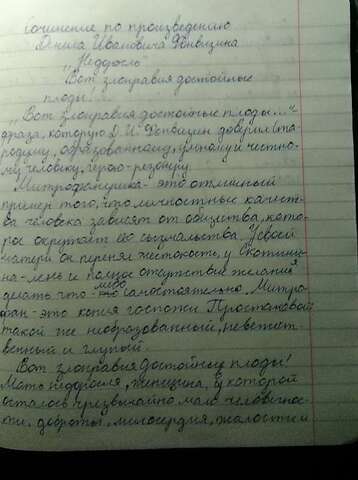 Сочинение по произведению
Дениса Ивановича Фонвизина
"Недоросль"
"Вот злонравия достойные
плоды!"
"Вот злонравия достойные плоды..." -
фраза, которую Д.И. Фонвизин доверил Ста-
родуму, образованному, умному и честно-
му человеку, герою-резонёру.
Митрофанушка - это отличный
пример того, что личностные качест-
ва человека зависят от общества, кото-
рое окружает его с измальства. У своей
матери он перенял жестокость, у Скотини-
на - лень и полное отсутствие желания
делать что-либо самостоятельно. Митро-
фан - это копия госпожи Простаковой
такой же необразованный, невежест-
венный и глупый.
Вот злонравия достойные плоды!
Мать недоросля, женщина, в которой
осталось чрезвычайно мало человечнос-
ти, доброты, милосердия, жалости и